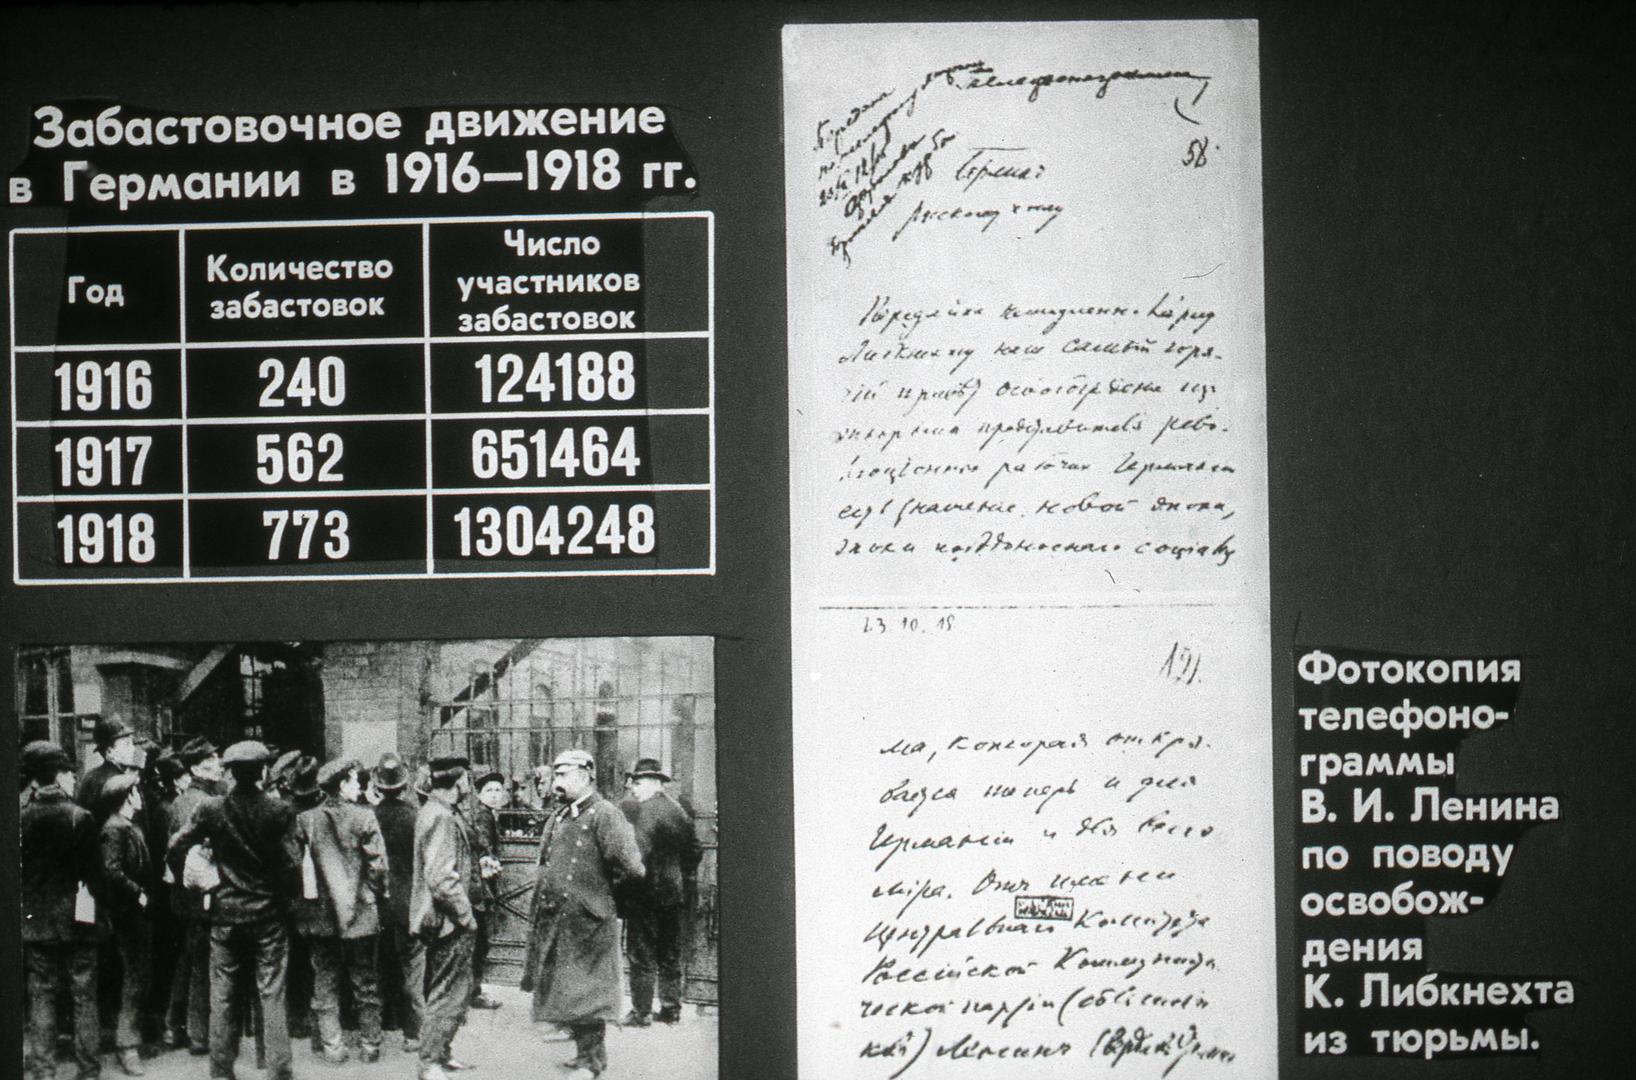 Забастовочное движение
в Германии в 1916—1918 гг.
Год
Количество
забастовок
Число
участников
забастовок
1916 240 124188
1917 562 651464
1918 773 1304248
58
Передайте немедленно Карлу
Либкнехту наш самый горя-
чий привет. Освобождение из
представителя рево-
рабочих Германии
есть знамение новой эпохи,
эпохи победоносного социализ
23.10.18
191.
ма, которая откры-
вается теперь и для
Германии и для всего
міра. Отъ имени
Центрального Комитета
Российской Коммунисти
ческой партіи (большеви
ков) Ленинъ
Фотокопия
телефоно-
граммы
В. И. Ленина
по поводу
освобож-
дения
К. Либкнехта
из тюрьмы.